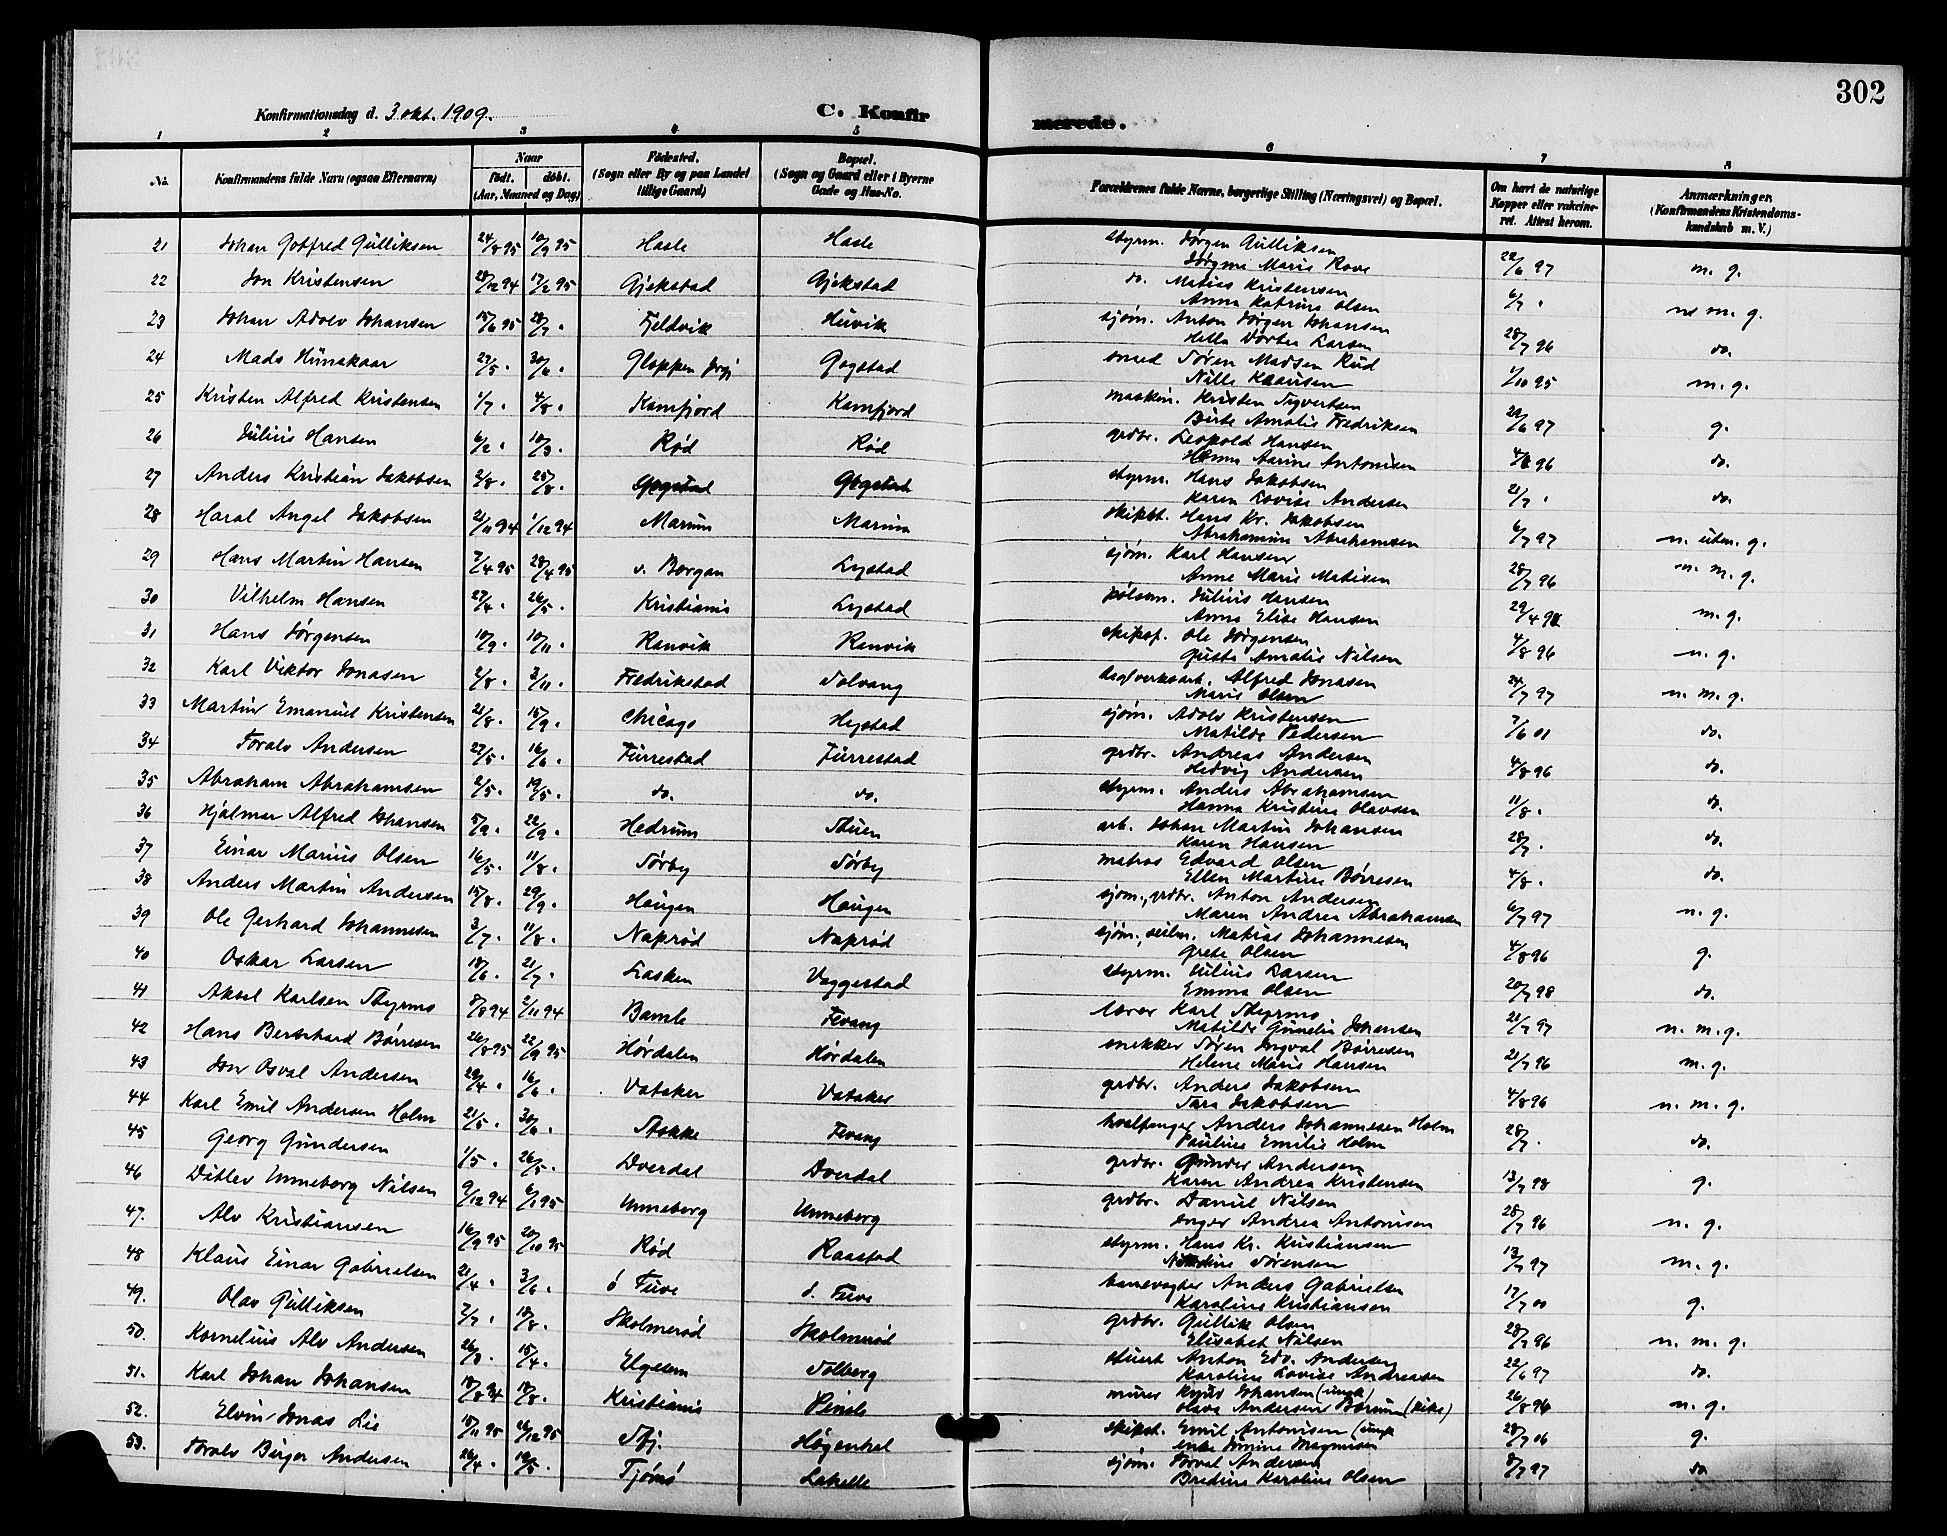 302
Konfirmationsdag d. 3 okt. 1909.
C. Konfirmerede.
1 2 3 4 5 6 7 8
No. Konfirmandens fulde Navn (ogsaa Efternavn) Naar født. døbt. (Aar, Maaned og Dag) Fødested. (Sogn eller By og paa Landet tillige Gaard) Bopæl. (Sogn og Gaard eller i Byerne Gade og Hus-No. Forældrenes fulde Navne, borgerlige Stilling (Næringsvei) og Bopæl. Om havt de naturlige Kopper eller vakcineret. Attest herom. Anmærkninger. (Konfirmandens Kristendomskundskab m. V.)
21 Johan Gotfred Gulliksen 24/8 95 10/9 95 Hasle Hasle styrm. Jørgen Gulliksen
Jørgine Marie Rove 22/6 97 m. g.
22 Jon Kristensen 28/12 94 17/2 95 Gjekstad Gjekstad do. Matias Kristensen
Anna Katrine Olsen 6/7 "
23 Johan Adolv Johansen 15/6 95 28/7 " Fjeldvik Huvik sjøm. Anton Jørgen Johansen
Helle Dortea Larsen 28/7 96 do.
24 Mads Hunskaar 27/5 " 30/6 " Gloppen Gogstad smed Søren Madsen Rud
Nille Klausen 1/10 95 m. g.
25 Kristen Alfred Kristensen 1/7 " 4/8 " Kamfjord Kamfjord maskin. Kristen Syvertsen
Birte Amalie Fredriksen 22/6 97 g.
26 Julius Hansen 6/2 " 10/3 " Rød Rød grdbr. Leopold Hansen
Hanna Karine Antonisen 96 do.
27 Anders Kristian Jakobsen 2/8 " 25/8 " Gogstad Gogstad styrm. Hans Jakobsen
Karen Lovise Andersen 21/7 " do.
28 Haral Angel Jakobsen 21/11 94 1/12 94 Marum Marum skibst. Hans Kr. Jakobsen
Abrahamine Abrahamsen 6/7 97 n. utm. g.
29 Hans Martin Hansen 7/4 95 28/4 95 v. Borgan Lystad sjøm. Karl Hansen
Anne Marie Matisen 28/7 96 n. m. g.
30 Vilhelm Hansen 27/4 " 26/5 " Kristiania Lystad pølsem. Julius Hansen
Anna Elise Hansen 29/4 m. g.
31 Hans Jørgensen 10/9 " 10/11 " Ranvik Ranvik skibst. Ole Jørgensen
Guste Amalie Nilsen 4/8 96 n. g.
32 Karl Viktor Jonasen 2/8 " 3/11 " Fredrikstad Solvang Alfred Jonasen
Marie Olsen 24/7 97 n. m. g.
33 Martin Emanuel Kristensen 21/8 " 15/9 " Chicago Hystad sjøm. Adolv Kristensen
Matilde Pedersen 7/6 01 do.
34 Toralv Andersen 27/5 " 16/6 " Furrestad Furrestad grdbr. Andreas Andersen
Hedvig Andersen 4/8 96 do.
35 Abraham Abrahamsen 2/5 " 19/5 " do. do. styrm. Anders Abrahamsen
Hanna Kristine Olavsen 11/8 " do.
36 Hjalmar Alfred Johansen 5/9 " 22/9 " Hedrum Stuen arb. Johan Martin Johansen
Karen Hansen 28/7 " do.
37 Einar Marius Olsen 16/5 " 11/8 " Sørby Sørby matros Edvard Olsen
Ellen Martine Børresen 4/8 " do.
38 Anders Martin Andersen 15/8 " 29/9 " Haugen Haugen sjøm., grdbr. Anton Andersen
Maren Andrea Abrahamsen 6/7 97 n. g.
39 Ole Gerhard Johannesen 3/7 " 11/8 " Naprød Naprød sjøm., seilm. Matias Johannesen
Grete Olsen 4/8 96 g.
40 Oskar Larsen 18/6 " 21/7 " Lasken Vaggestad styrm. Julius Larsen
Emma Olsen 20/7 98 do.
41 Aksel Karlsen Styrmo 8/8 94 2/11 94 Bamle Fevang lærer Karl Styrmo
Matilde Gunelie Johansen 21/7 97 n. m. g.
42 Hans Bernhard Børresen 26/8 95 22/9 95 Hørdalen Hørdalen snekker Søren Ingval Børresen
Helene Marie Hansen 21/7 96 m. g.
43 Jon Osval Andersen 29/4 " 16/6 " Vataker Vataker grdbr. Anders Jakobsen
Sara Jakobsen 4/8 96 n. m. g.
44 Karl Emil Andersen Holm 21/5 " 30/6 " Stokke Fevang hvalfanger Anders Johannesen Holm
Pauline Emilie Holm 28/7 " do.
45 Georg Gundersen 1/5 " 26/5 " Dverdal Dverdal grdbr. Gunder Andersen
Karen Andrea Kristensen 13/7 98 g.
46 Ditlev Unneberg Nilsen 9/12 94 6/1 95 Unneberg Unneberg grdbr. Daniel Nilsen
Inger Andrea Antonisen 28/7 96 n. g.
47. Alv Kristiansen 16/9 95 20/10 95 Rød Raastad styrm. Hans Kr. Kristiansen
Sørensen 13/7 97 m. g.
48 Klaus Einar Gabrielsen 21/4 " 3/6 " ö Tuve ö. Tuve banevogter Anders Gabrielsen
Karoline Kristiansen 17/7 00 g.
49. Olav Gulliksen 7/7 " 18/8 " Skolmerød Skolmerød grdbr. Gullik Olsen
Elisabet Nilsen 28/7 96 n. m. g.
50. Kornelius Alv Andersen 26/3 " 15/4 " Elgesem Solberg stuert Anton Edv. Andersen
Karoline Lovise Andreasen 22/6 97 do.
51. Karl Johan Johansen 18/8 94 18/8 " Kristiania Pindsle murer Knud Johansen (ungk)
Olava Andersen Borum (pike) 26/8 n. g.
52. Elvin Jonas Lie 18/11 95 26/12 95 Sfj. Høgenhal skibst. Emil Antonisen (ungk
enke Magnussen 28/7 06 g.
53. Toralv Birger Andersen 26/4 " Tjømø Lahelle sjøm. Torval Andersen
Bredine Karoline Olsen 8/7 97 do